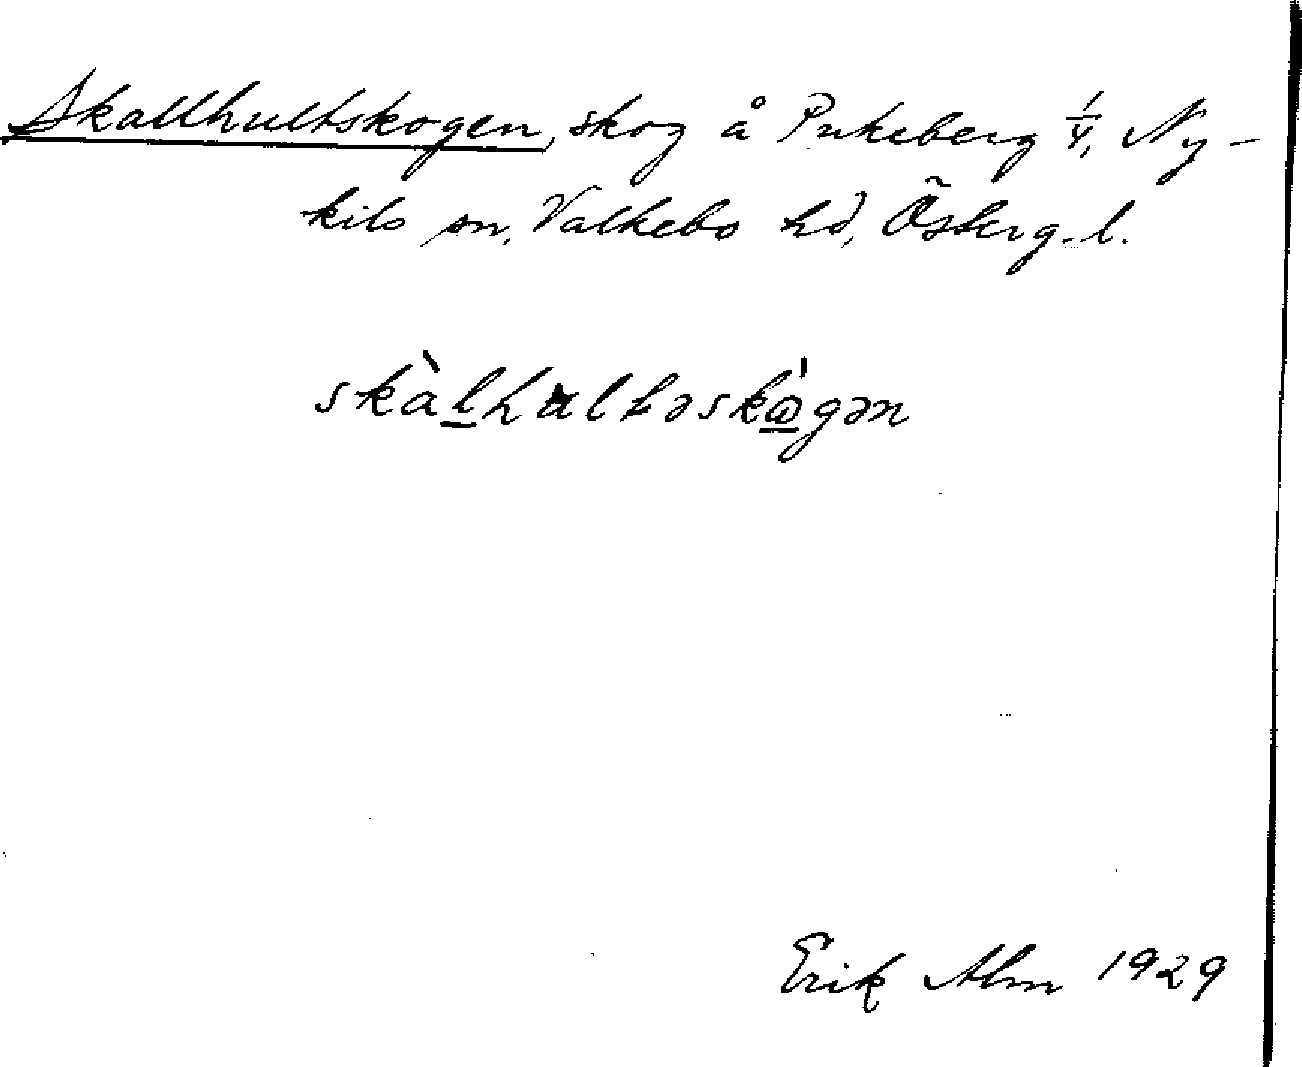 Skallhultskogen, skog å Pukeberg 1/4, Ny-
kils sn, Valkebo hd, Österg. l.
skàlhultəskɷ̀gən
Erik Alm 1929